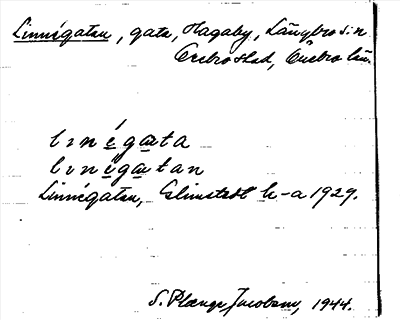 Linnégatan, gata, Hagaby, Längbro sn
Örebro stad, Örebro län.
lınégata
lınégatan
Linnégatan, Elmstedt h-a 1929.
S. Plænge Jacobson, 1944.